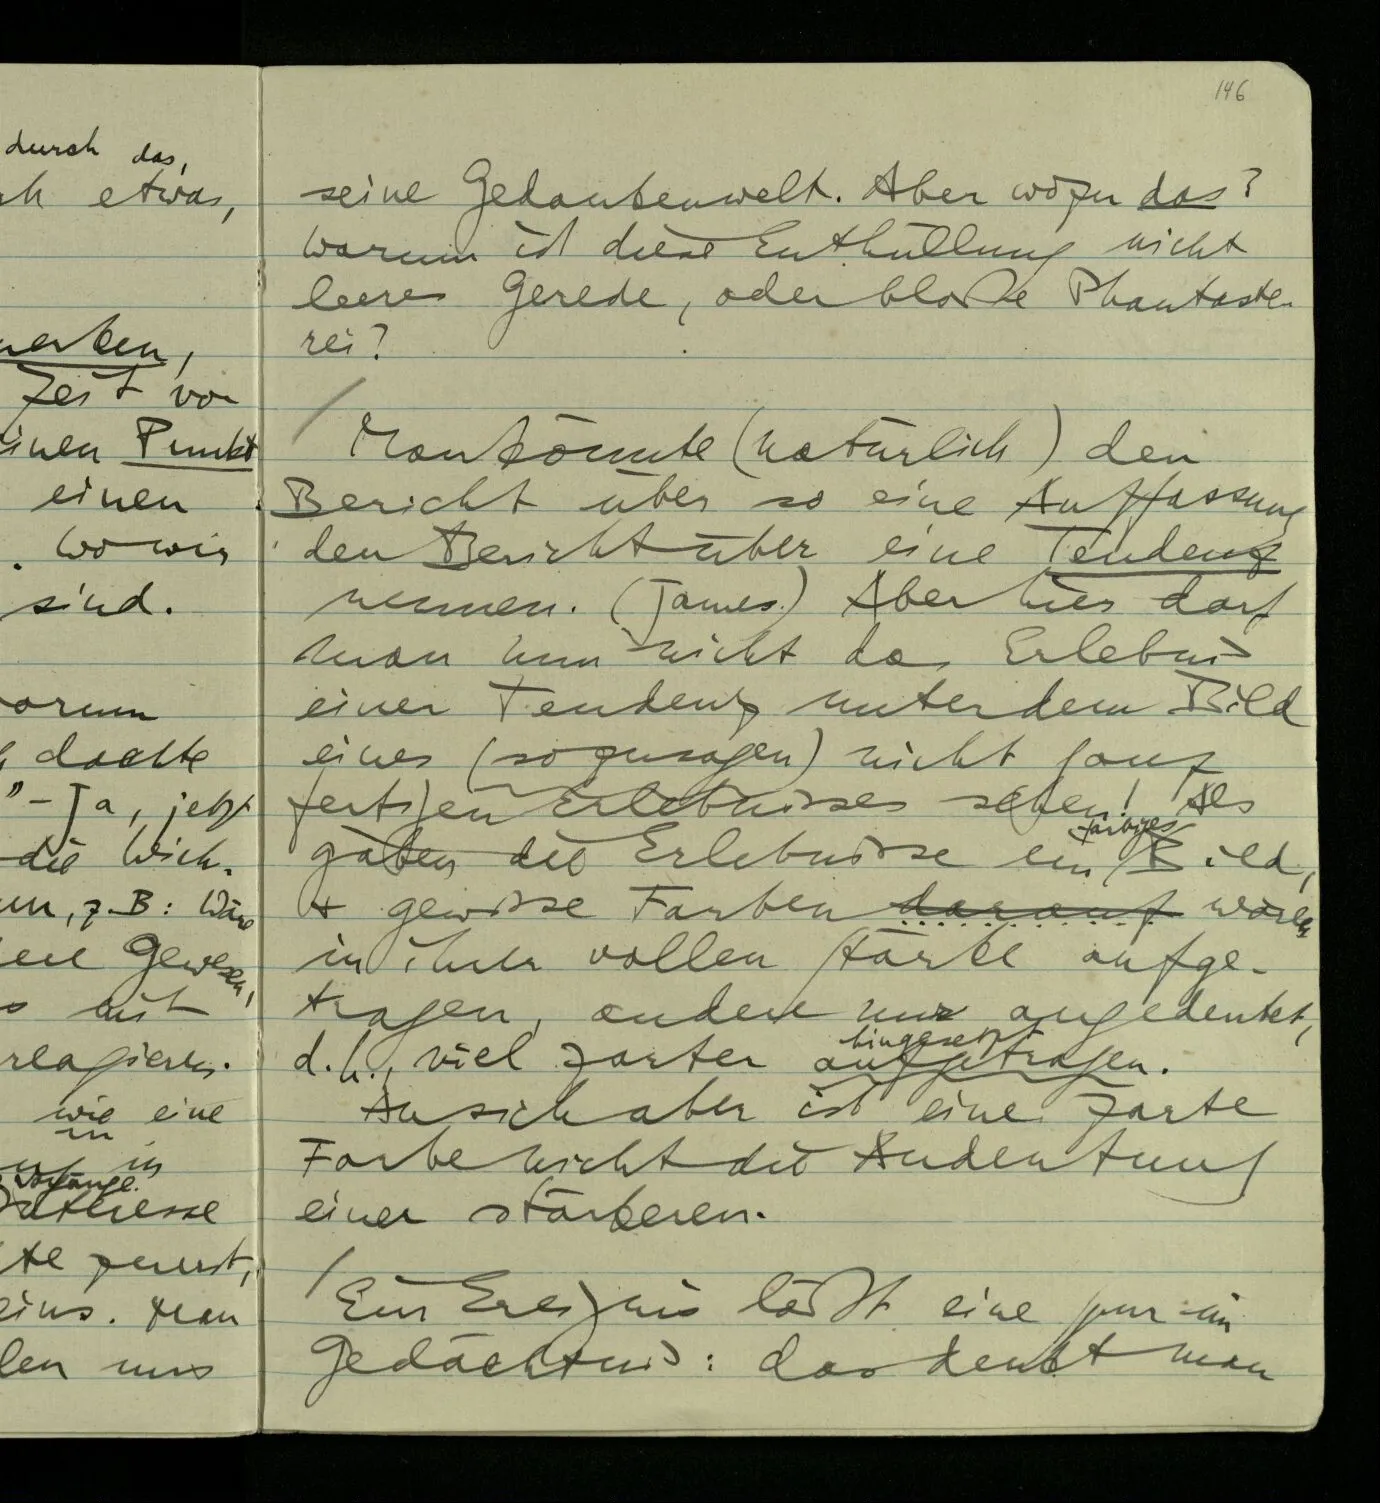 durch das,
etwas,
merken,
Zeit von
einen Punkt
einen
. Wo wir
sind.
warum
dachte
" – Ja, jetzt
die Wich-
z.B: Wäre
Gewesen,
mit
reagieren.
wie eine
in
in
Vorgänge.
Interesse
zuerst,
eins. Man
uns
146
seine Gedankenwelt. Aber wozu das?
Warum ist diese Enthüllung nicht
leeres Gerede, oder bloße Phantaste-
rei?
/ Man könnte (natürlich) den
Bericht über so eine Auffassung
den Bericht über eine Tendenz
nennen. (James.) Aber hier darf
man nun nicht das Erlebnis
einer Tendenz unter dem Bild
eines (sozusagen) nicht ganz
fertigen Erlebnisses sehen! Als
färbiges
gäben die Erlebnisse ein Bild,
+ gewisse Farben darauf wären
in ihrer vollen Stärke aufge-
tragen, andere nur angedeutet,
hingesetzt
d.h., viel zarter aufgetragen.
An sich aber ist eine zarte
Farbe nicht die Andeutung
einer stärkeren.
/ Ein Ereignis läßt eine Spur im
Gedächtnis: das denkt man